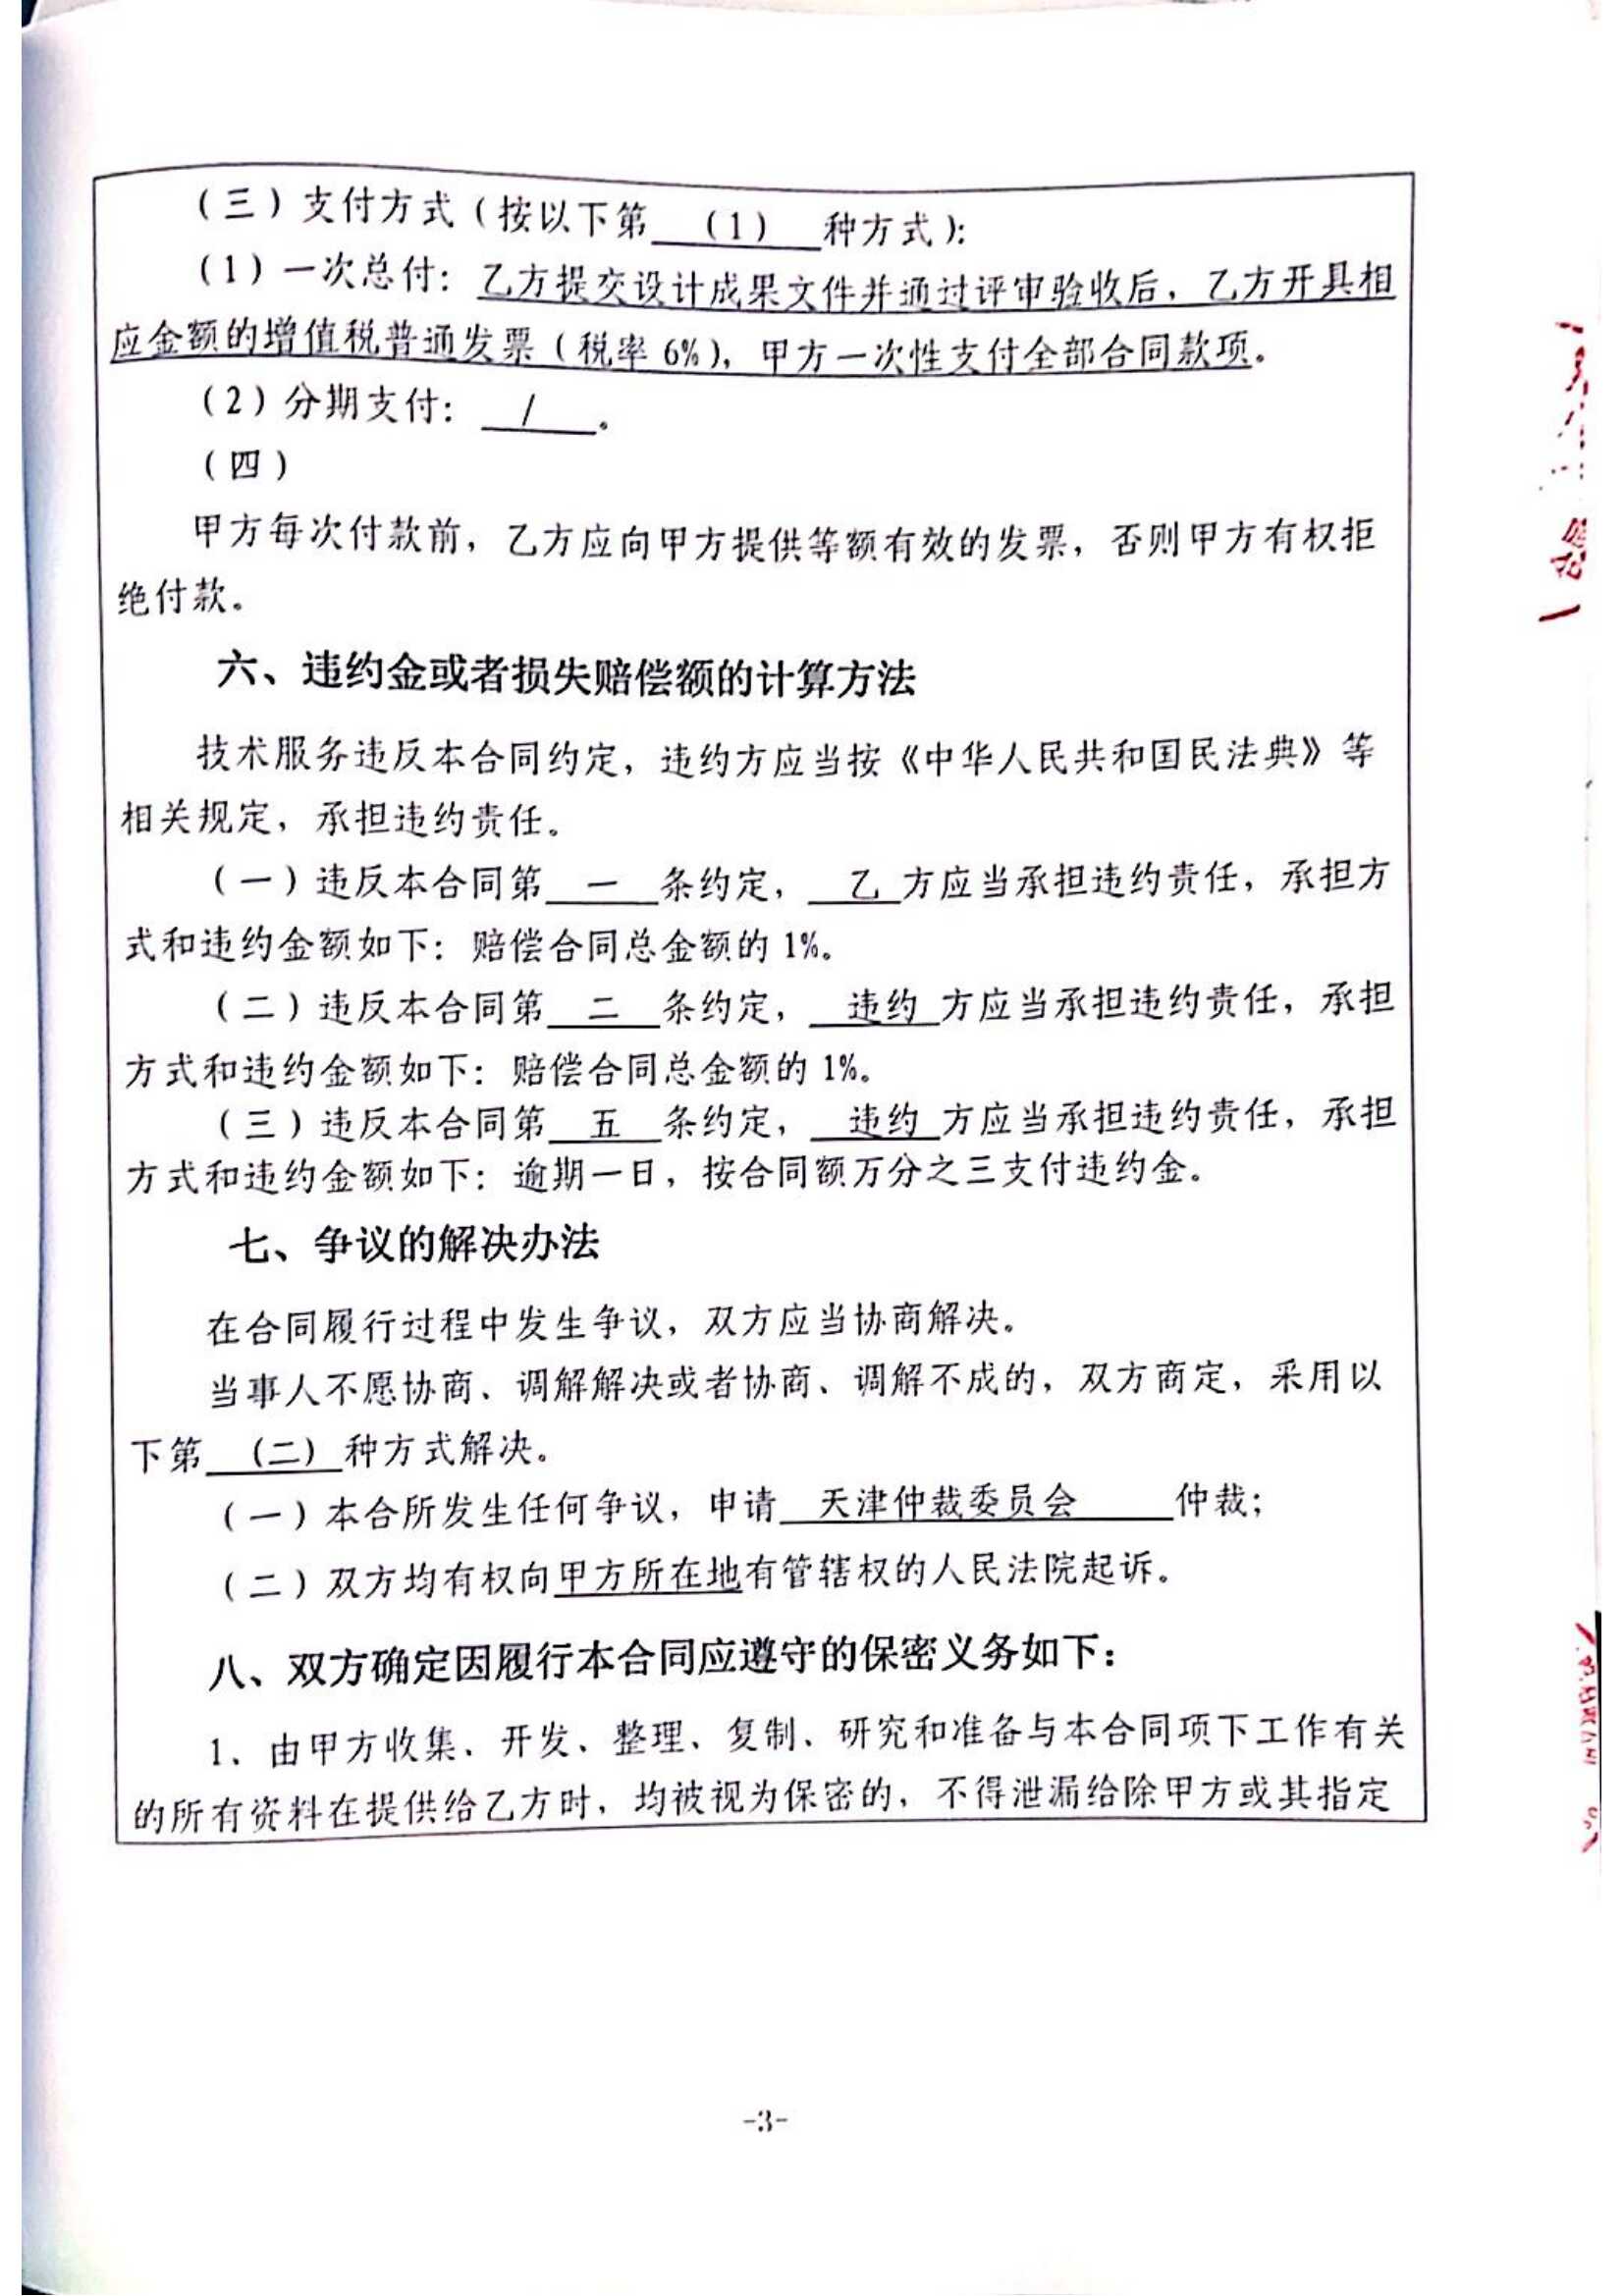 （三）支付方式（按以下第 （1） 种方式）：
（1）一次总付：乙方提交设计成果文件并通过评审验收后，乙方开具相
应金额的增值税普通发票（税率 6%），甲方一次性支付全部合同款项。
（2）分期支付： / 。
（四）
甲方每次付款前，乙方应向甲方提供等额有效的发票，否则甲方有权拒
绝付款。
六、违约金或者损失赔偿额的计算方法
技术服务违反本合同约定，违约方应当按《中华人民共和国民法典》等
相关规定，承担违约责任。
（一）违反本合同第 一 条约定， 乙 方应当承担违约责任，承担方
式和违约金额如下：赔偿合同总金额的 1%。
（二）违反本合同第 二 条约定， 违约 方应当承担违约责任，承担
方式和违约金额如下：赔偿合同总金额的 1%。
（三）违反本合同第 五 条约定， 违约 方应当承担违约责任，承担
方式和违约金额如下：逾期一日，按合同额万分之三支付违约金。
七、争议的解决办法
在合同履行过程中发生争议，双方应当协商解决。
当事人不愿协商、调解解决或者协商、调解不成的，双方商定，采用以
下第 （二） 种方式解决。
（一）本合所发生任何争议，申请 天津仲裁委员会 仲裁；
（二）双方均有权向甲方所在地有管辖权的人民法院起诉。
八、双方确定因履行本合同应遵守的保密义务如下：
1、由甲方收集、开发、整理、复制、研究和准备与本合同项下工作有关
的所有资料在提供给乙方时，均被视为保密的，不得泄漏给除甲方或其指定
-3-